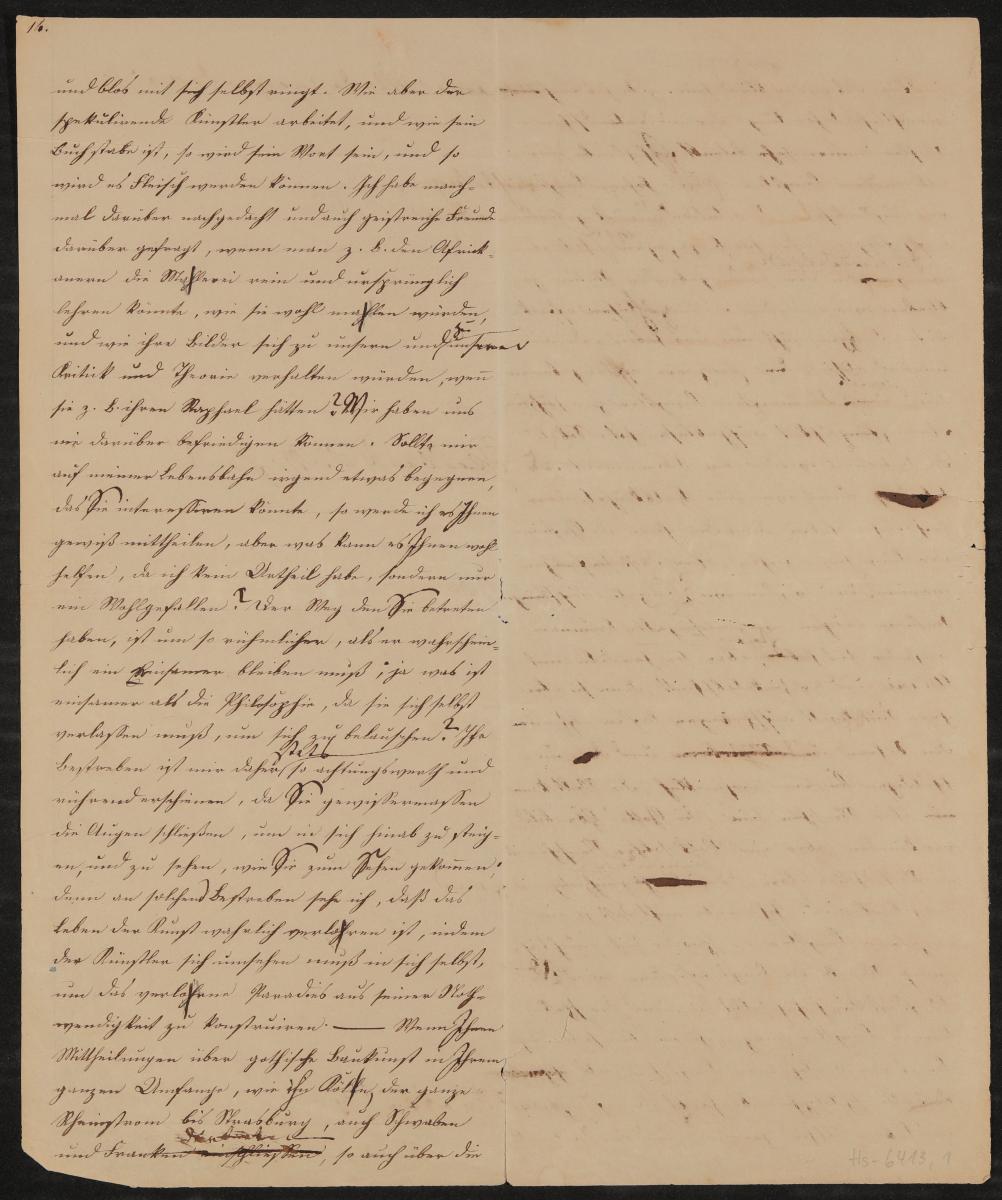 16.
und blos mit sich selbst ringt. Wie aber der
spekulirende Künstler arbeitet, und wie sein
Buchstabe ist, so wird sein Wort sein, und so
wird es Fleisch werden können. Ich habe manch-
mal darüber nachgedacht und auch geistreiche Freunde
darüber gefragt, wenn man z. B. den Afrik-
anern die Mahlerei rein und ursprünglich
lehren könnte, wie sie wohl mahlen würden,
und wie ihre Bilder sich zu unsern und zu unserer
Kritick und Theorie verhalten würden, wen̄
sie z. B. ihren Raphael hätten? Wir haben uns
nie darüber befriedigen können. Sollte mir
auf meiner Lebensbahn irgend etwas begegnen,
das Sie interessiren könnte, so werde ich es Ihnen
gewiß mittheilen, aber was kann es Ihnen wohl
helfen, da ich kein Urtheil habe, sondern nur
ein Wohlgefallen? Der Weg den Sie betreten
haben, ist um so rühmlicher, als er wahrschein-
lich ein Einsamer bleiben muß; ja was ist
einsamer als die Philosophie, da sie sich selbst
verlassen muß, um sich zu belauschen? Ihr
stets
Bestreben ist mir daher so achtungswerth und
rührend erschienen, da Sie gewissermassen
die Augen schließen, um in sich hinab zu steig-
en, und zu sehen, wie Sie zum Sehen gekom̄en;
denn an solchem Bestreben sehe ich, daß das
Leben der Kunst wahrlich verlohren ist, indem
der Künstler sich umsehen muß in sich selbst,
um das verlohrne Paradies aus seiner Noth-
wendigkeit zu konstruiren. — Wenn Ihnen
Mittheilungen über gothische Baukunst in Ihrem
ganzen Umfange, wie ihn Kölln, der ganze
Rheinstrom bis Strasburg, auch Schwaben
und Franken einschliessen, so auch über die
Hs-6413,1